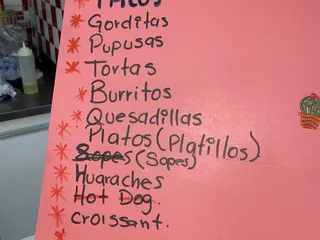 TACOS
* Gorditas
* Pupusas
* Tortas
* Burritos
* Quesadillas
* Platos (Platillos)
* Sopes (Sopes)
* Huaraches
* Hot Dog.
* croissant.